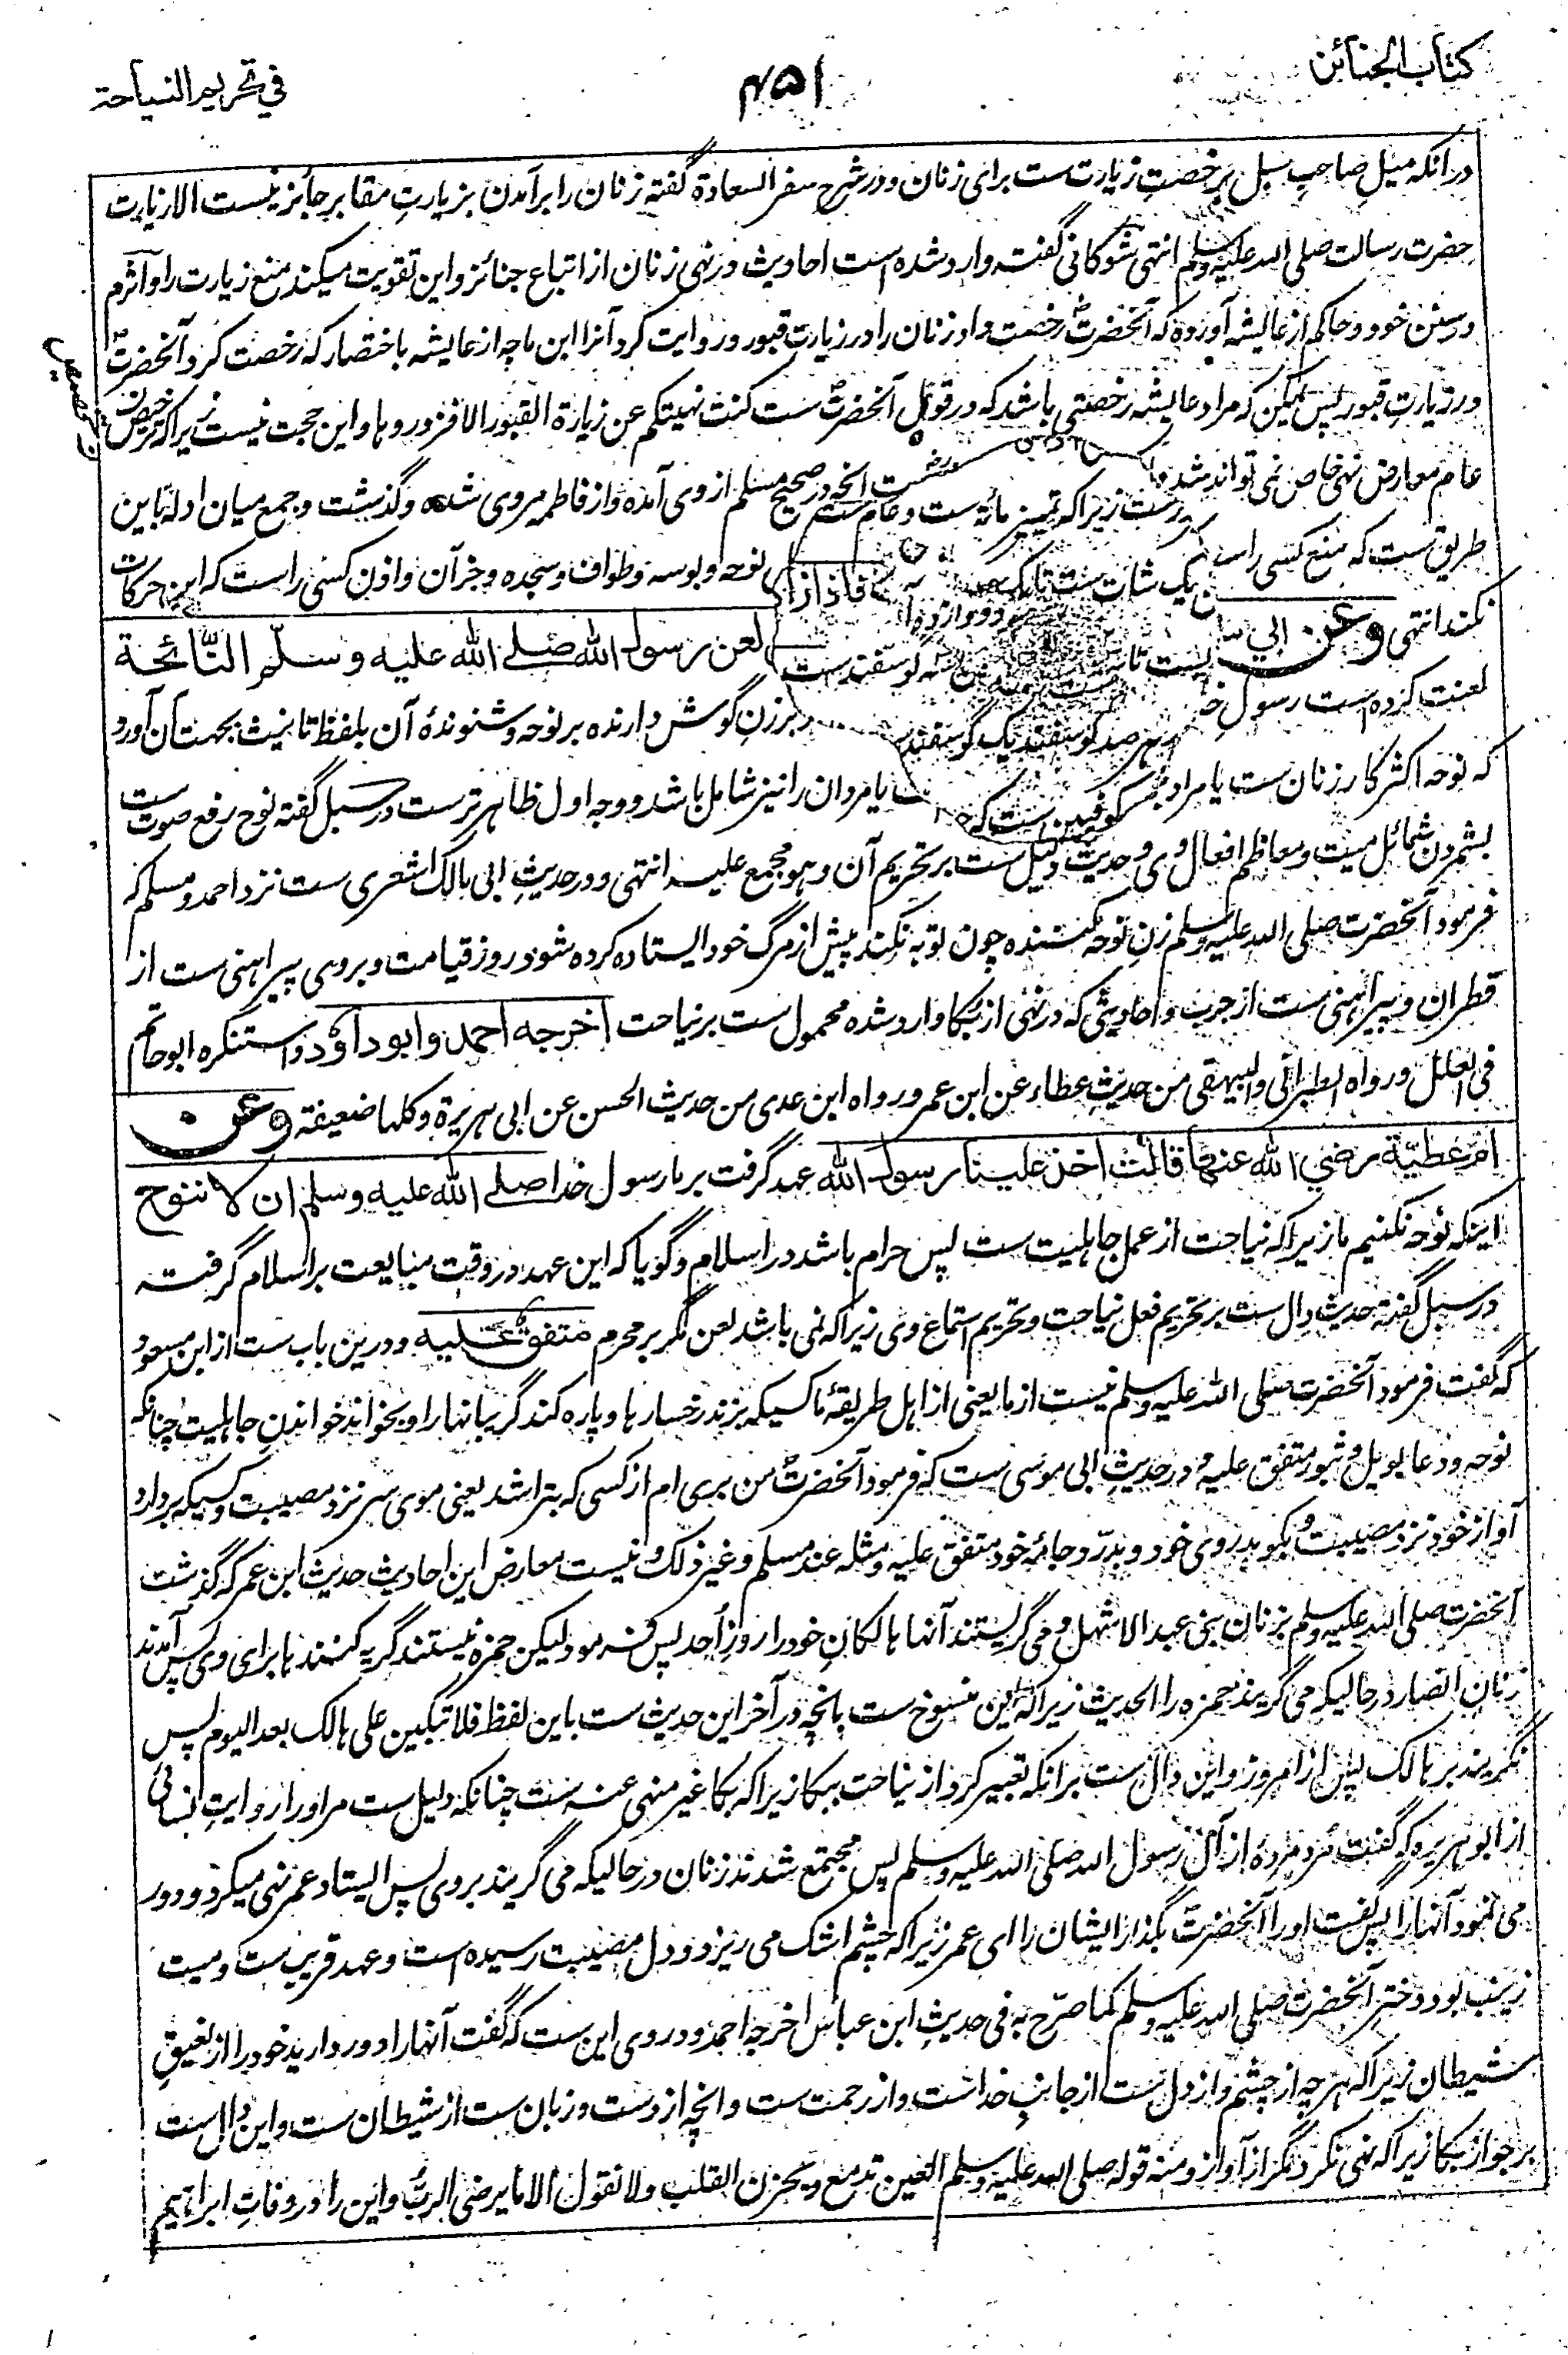 كتاب الجنائز
۴۵۱
في تحريم النياحة
درانکه میل صاحب سبل بر رخصتِ زیارت ست برای زنان و در شرح سفر السعادة گفته زنان را برآمدن بزیارتِ مقابر جائز نیست الا زیارت
حضرت رسالت صلی الله علیه وسلم انتهی شوکانی گفته وارد شده است احادیث در نهی زنان از اتباع جنائز و این تقویت میکند منع زیارت را و اثرم
در سنن خود و حاکم از عایشه آورده که آنحضرت رخصت داد زنان را در زیارتِ قبور و روایت کرد آنرا ابن ماجه از عایشه باختصار که رخصت کرد آنحضرت
در زیارتِ قبور پس لیکن که مراد عایشه رخصتی باشد که در قول آنحضرت ست کنت نهیتکم عن زیارة القبور الا فزوروها و این حجت نیست زیرا که ترخیص
عام معارض نهی خاص نمی تواند شد در صحیح مسلم از وی آمده و از فاطمه مروی شده و گذشت و جمع میان ادله باین
طریق ست که منع کسی راست نوحه و بوسه و طواف و سجده و جز آن و اذن کسی راست که این حرکات
نکند انتهی وعن ابي لعن رسول الله صلى الله عليه وسلم النائحة
لعنت کرده است رسول بر زنِ گوش دارنده بر نوحه و شنوندۀ آن بلفظ تانیث بجهت آن آورد
که نوحه اکثر کار زنان ست یا مراد یا مردان را نیز شامل باشد و وجه اول ظاهر ترست در سبل گفته نوح رفع صوت ست
بشمردن شمائل میت و معاظم افعال وی و حدیث دلیل ست بر تحریم آن و هو مجمع علیه انتهی و در حدیثِ ابی مالک اشعری ست نزد احمد و مسلم که
فرمود آنحضرت صلی الله علیه وسلم زنِ نوحه کننده چون توبه نکند پیش از مرگ خود ایستاده کرده شود روز قیامت و بر وی پیراهنی ست از
قطران و پیراهنی ست از جرب و احادیثی که در نهی از بکا وارد شده محمول ست بر نیاحت اخرجه احمد وابو داؤد واستنکره ابوحاتم
فی العلل ورواه الطبرانی والبیهقی من حدیث عطاء عن ابن عمر ورواه ابن عدی من حدیث الحسن عن ابی هریرة وکلها ضعیفة وعن
ام عطية رضي الله عنها قالت اخذ علينا رسول الله عهد گرفت بر ما رسول خدا صلى الله عليه وسلم ان لا ننوح
اینکه نوحه نکنیم ما زیرا که نیاحت از عمل جاهلیت ست پس حرام باشد در اسلام و گویا که این عهد در وقت مبایعت بر اسلام گرفته
در سبل گفته حدیث دال ست بر تحریم فعل نیاحت و تحریم استماع وی زیرا که نمی باشد لعن مگر بر محرم متفق عليه و درین باب ست از ابن مسعود
که گفت فرمود آنحضرت صلی الله علیه وسلم نیست از ما یعنی از اهل طریقۀ ما کسیکه بزند رخسارها و پاره کند گریبانها را و بخواند خواندنِ جاهلیت چنانکه
نوحه و دعا بویل و ثبور متفق علیه و در حدیثِ ابی موسی ست که فرمود آنحضرت من بری ام از کسی که بتراشد یعنی موی سر نزد مصیبت و کسیکه بردارد
آواز خود نزد مصیبت و بکوبد روی خود و بدرّد جامۀ خود متفق علیه و مثله عند مسلم و غیر ذلک و نیست معارض این احادیث حدیث ابن عمر که گذشت
آنحضرت صلی الله علیه وسلم بزنان بنی عبد الاشهل و می گریستند آنها هالکانِ خود را روز اُحد پس فرمود لیکن حمزه نیستند گریه کنندها برای وی پس آمدند
زنانِ انصار در حالیکه می گریند حمزه را الحدیث زیرا که این منسوخ ست بانچه در آخر این حدیث ست باین لفظ فلا تبکین علی هالک بعد الیوم پس
نگریند بر هالک پس از امروز و این دال ست برانکه تعبیر کرد از نیاحت ببکا زیرا که بکا غیر منهی عنه ست چنانکه دلیل ست مر او را روایتِ نسائی
از ابو هریره که گفت مُرد مردۀ از آلِ رسول الله صلی الله علیه وسلم پس مجتمع شدند زنان در حالیکه می گریند بر وی پس ایستاد عمر نهی میکرد و دور
می نمود آنها را پس گفت او را آنحضرت بگذار ایشان را ای عمر زیرا که چشم اشک می ریزد و دل مصیبت رسیده است و عهد قریب ست و میت
زینب بود دخترِ آنحضرت صلی الله علیه وسلم کما صرّح به فی حدیثِ ابن عباس اخرجه احمد و در وی این ست که گفت آنها را دور دارید خود را از نعیقِ
شیطان زیرا که هر چه از چشم و از دل ست از جانبِ خداست و از رحمت ست و انچه از دست و زبان ست از شیطان ست و این دال ست
بر جواز بکا زیرا که نهی نکرد مگر از آواز ومنه قوله صلی الله علیه وسلم العین تدمع ویحزن القلب ولا نقول الا ما یرضی الربّ و این را در وفاتِ ابراهیم